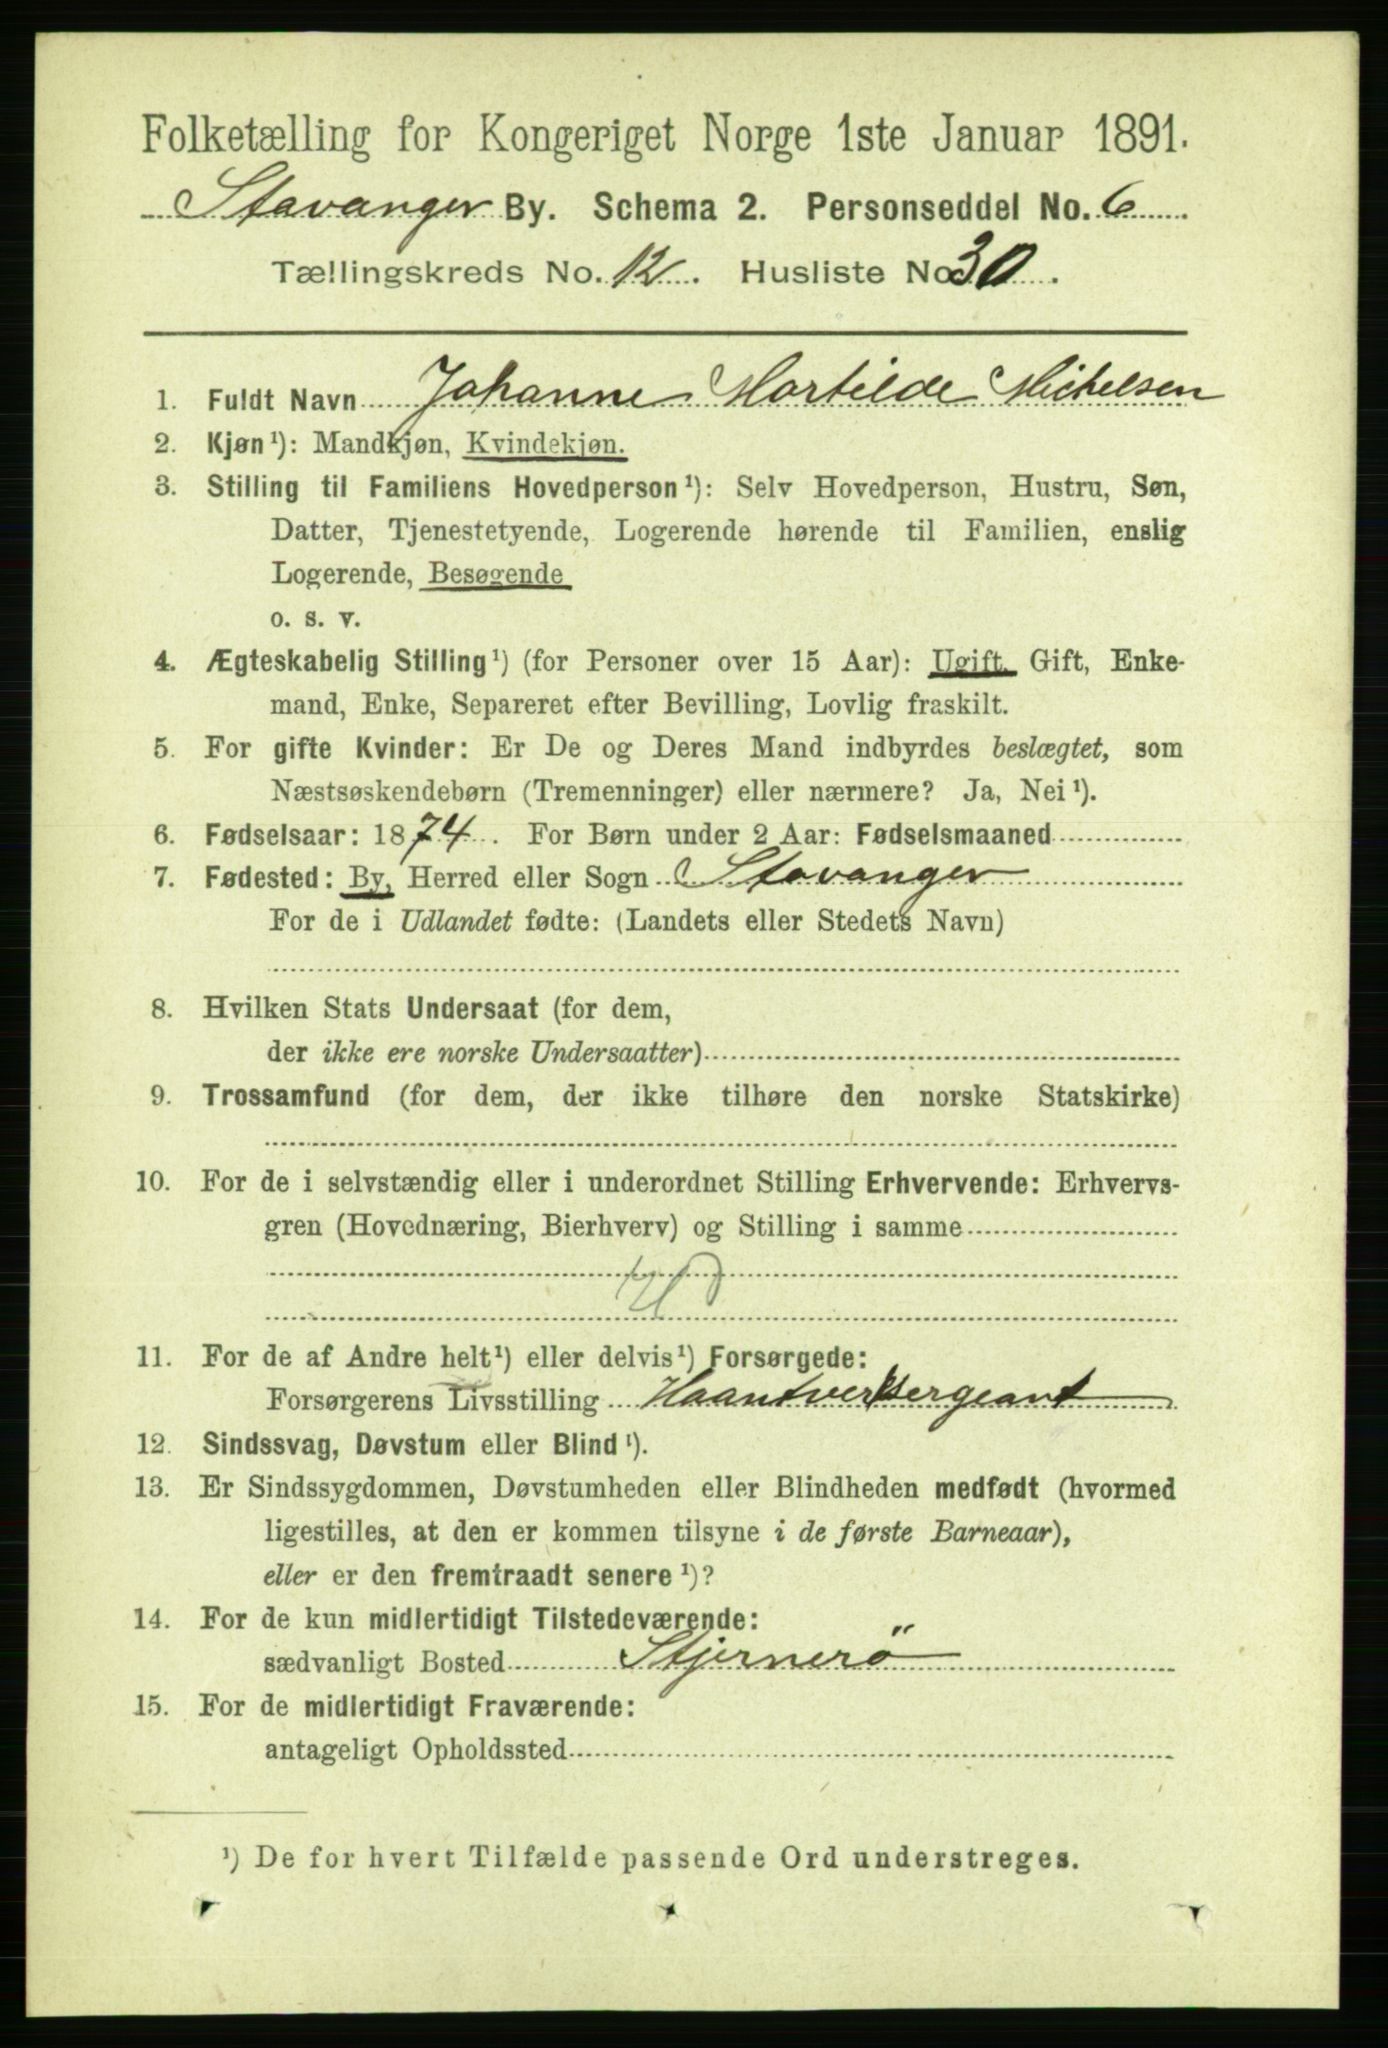 Folketælling for Kongeriget Norge 1ste Januar 1891.
Stavanger By. Schema 2. Personseddel No. 6
Tællingskreds No. 12. Husliste No 30.
1. Fuldt Navn Johanne Martilde Michelsen
2. Kjøn¹): Mandkjøn, Kvindekjøn.
3. Stilling til Familiens Hovedperson¹): Selv Hovedperson, Hustru, Søn,
Datter, Tjenestetyende, Logerende hørende til Familien, enslig
Logerende, Besøgende
o. s. v.
4. Ægteskabelig Stilling¹) (for Personer over 15 Aar): Ugift, Gift, Enke-
mand, Enke, Separeret efter Bevilling, Lovlig fraskilt.
5. For gifte Kvinder: Er De og Deres Mand indbyrdes beslægtet, som
Næstsøskendebørn (Tremenninger) eller nærmere? Ja, Nei¹).
6. Fødselsaar: 1874. For Børn under 2 Aar: Fødselsmaaned
7. Fødested: By, Herred eller Sogn Stavanger
For de i Udlandet fødte: (Landets eller Stedets Navn)
8. Hvilken Stats Undersaat (for dem,
der ikke ere norske Undersaatter)
9. Trossamfund (for dem, der ikke tilhøre den norske Statskirke)
10. For de i selvstændig eller i underordnet Stilling Erhvervende: Erhvervs-
gren (Hovednæring, Bierhverv) og Stilling i samme
11. For de af Andre helt¹) eller delvis¹) Forsørgede:
Forsørgerens Livsstilling Haantverksergeant
12. Sindssvag, Døvstum eller Blind¹).
13. Er Sindssygdommen, Døvstumheden eller Blindheden medfødt (hvormed
ligestilles, at den er kommen tilsyne i de første Barneaar),
eller er den fremtraadt senere¹)?
14. For de kun midlertidigt Tilstedeværende:
sædvanligt Bosted Stjernerö
15. For de midlertidigt Fraværende:
antageligt Opholdssted
¹) De for hvert Tilfælde passende Ord understreges.